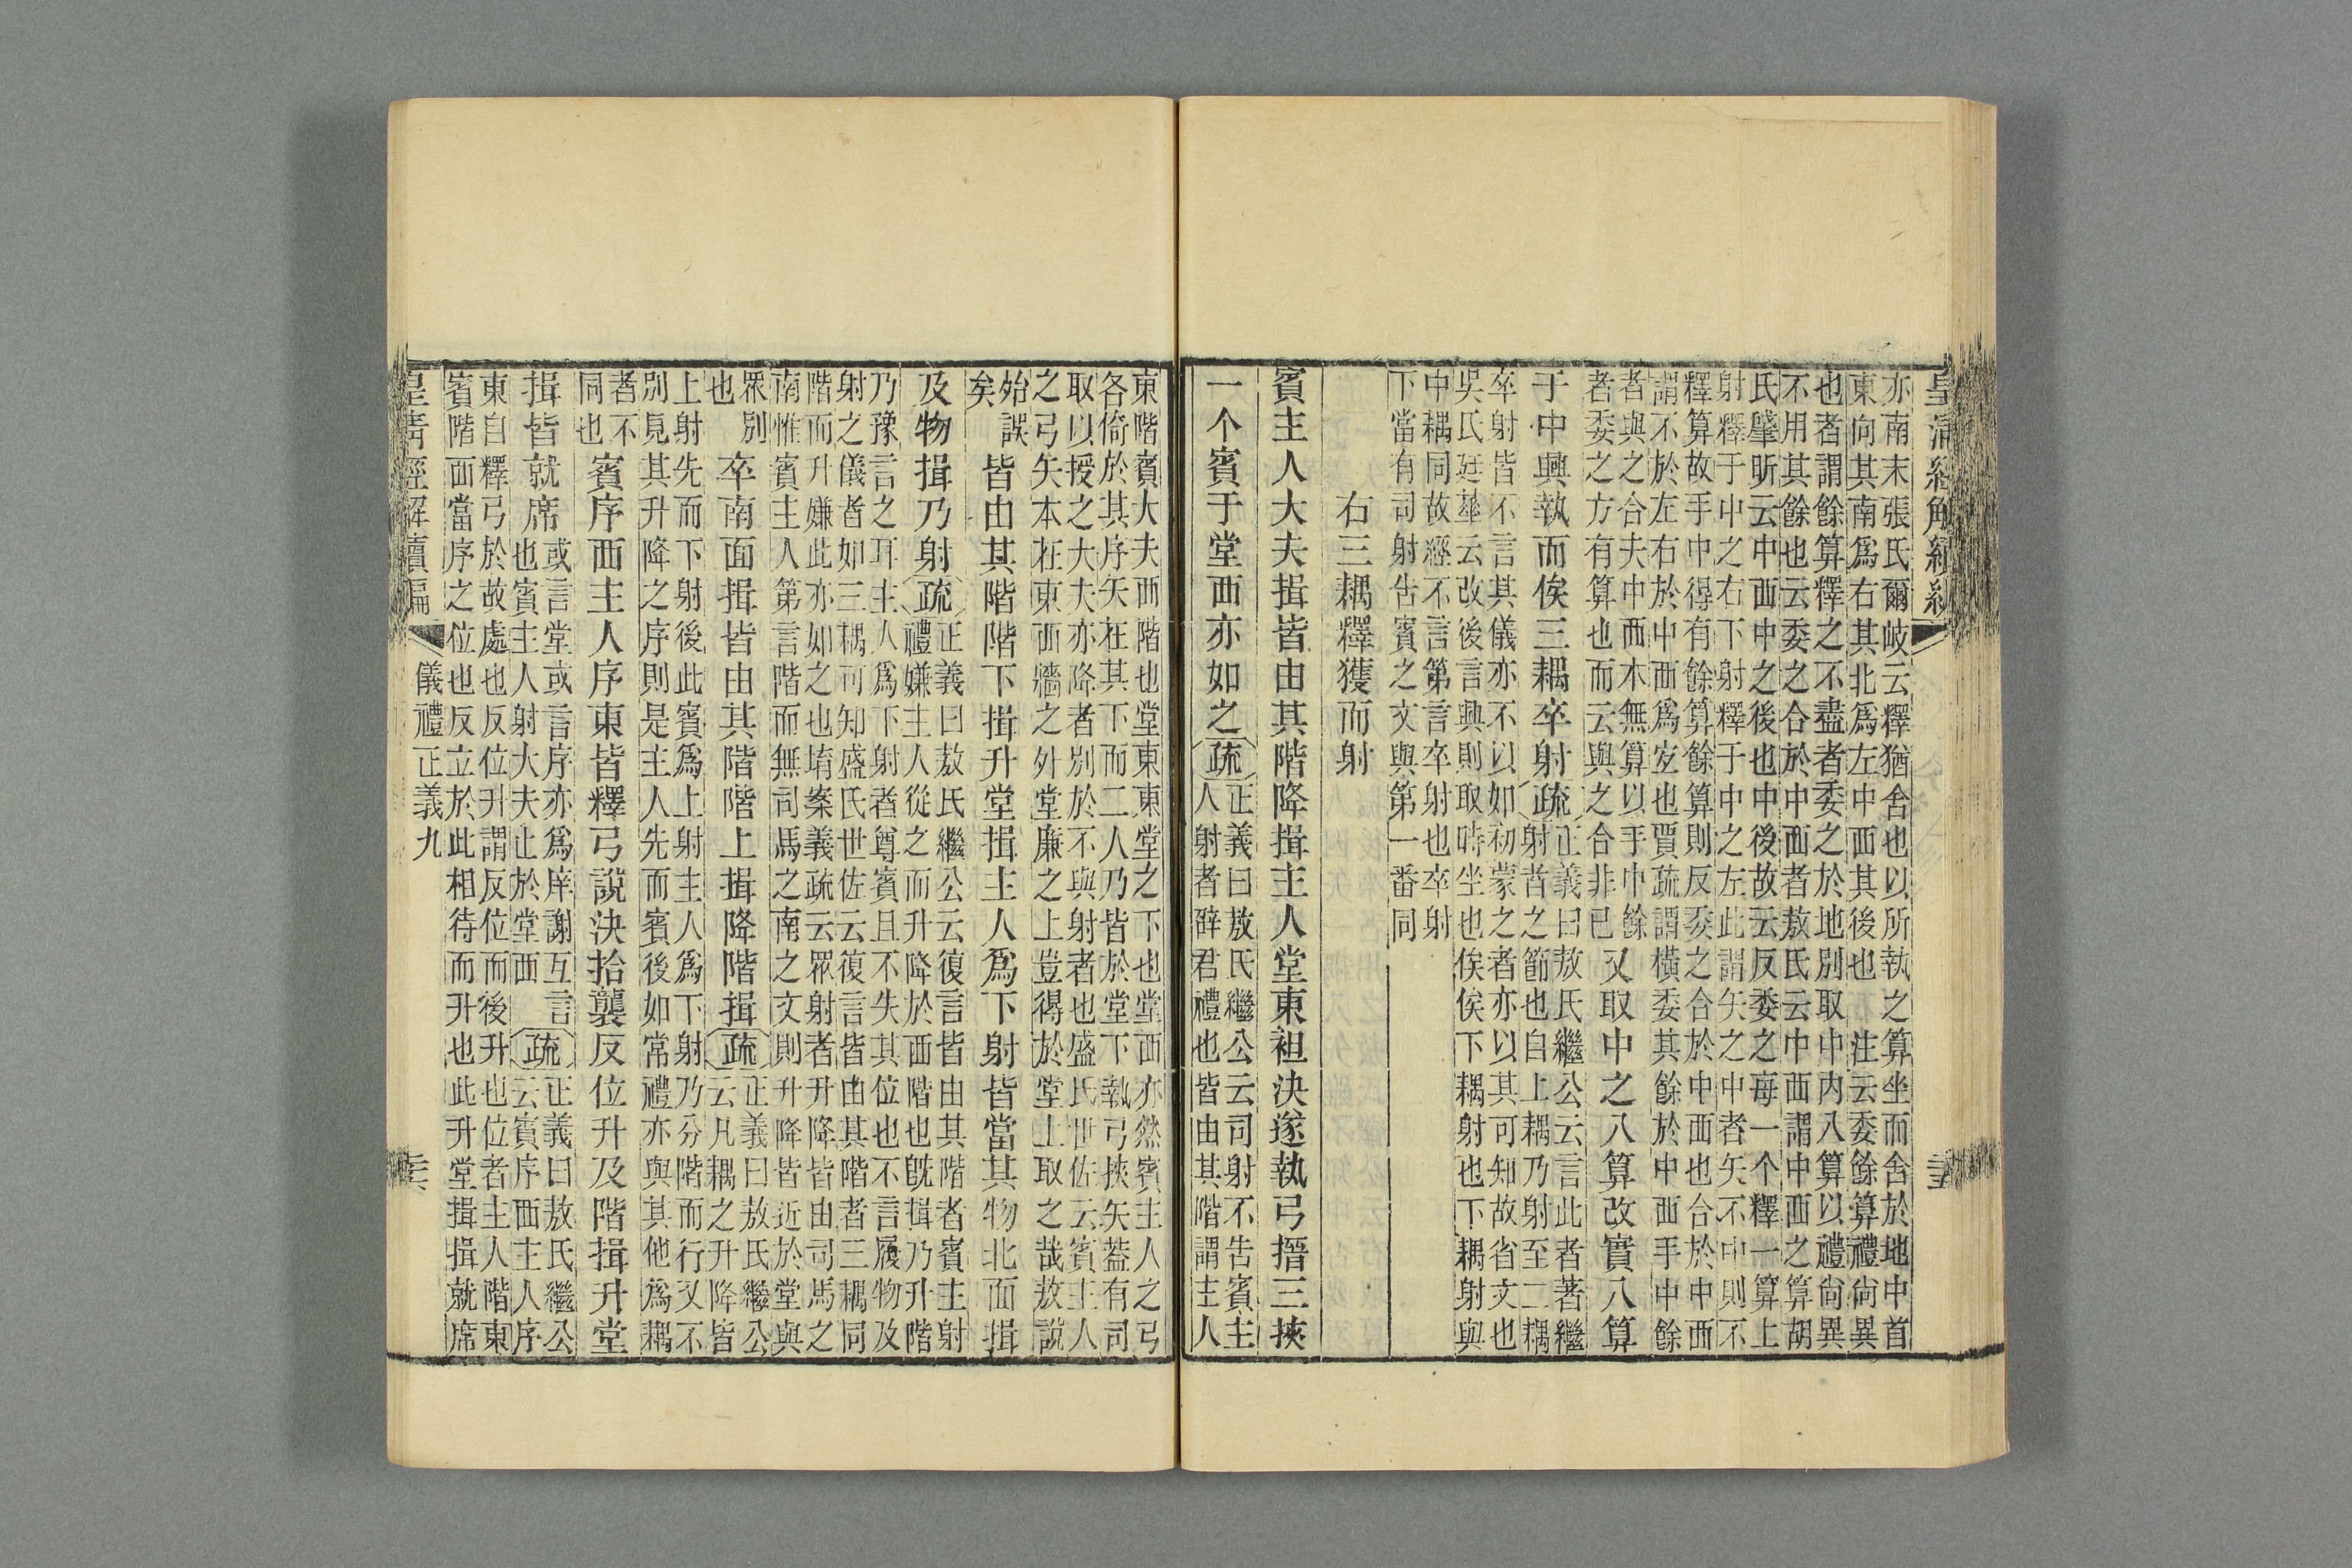 皇清經解續編
亦南末張氏爾岐云釋猶舍也以所執之算坐而舍於地中首
東向其南爲右其北爲左中西其後也 注云委餘算禮尙異
也者謂餘算釋之不盡者委之於地別取中內八算以禮尙異
不用其餘也云委之合於中西者敖氏云中西謂中西之算胡
氏肇昕云中西中之後也中後故云反委之每一个釋一算上
射釋于中之右下射釋于中之左此謂矢之中者矢不中則不
釋算故手中得有餘算餘算則反委之合於中西也合於中西
謂不於左右於中西爲宐也賈疏謂橫委其餘於中西手中餘
者與之合夫中西本無算以手中餘
者委之方有算也而云與之合非已
又取中之八算改實八算
于中興執而俟三耦卒射
疏
正義曰敖氏繼公云言此者著繼
射者之節也自上耦乃射至二耦
卒射皆不言其儀亦不以如初蒙之者亦以其可知故省文也
吳氏廷華云改後言興則取時坐也俟俟下耦射也下耦射與
中耦同故經不言第言卒射也卒射
下當有司射告賓之文與第一番同
右三耦釋獲而射
賓主人大夫揖皆由其階降揖主人堂東袒決遂執弓搢三挾
一个賓于堂西亦如之
疏
正義曰敖氏繼公云司射不告賓主
人射者辟君禮也皆由其階謂主人
東階賓大夫西階也堂東東堂之下也堂西亦然賓主人之弓
各倚於其序矢在其下而二人乃皆於堂下執弓挾矢葢有司
取以授之大夫亦降者別於不與射者也盛氏世佐云賓主人
之弓矢本在東西牆之外堂廉之上豈得於堂上取之哉敖說
始誤
矣
皆由其階階下揖升堂揖主人爲下射皆當其物北面揖
及物揖乃射
疏
正義曰敖氏繼公云復言皆由其階者賓主射
禮嫌主人從之而升降於西階也旣揖乃升階
乃豫言之耳主人爲下射者尊賓且不失其位也不言履物及
射之儀者如三耦可知盛氏世佐云復言皆由其階者三耦同
階而升嫌此亦如之也堉案義疏云眾射者升降皆由司馬之
南惟賓主人第言階而無司馬之南之文則升降皆近於堂與
眾別
也
卒南面揖皆由其階階上揖降階揖
疏
正義曰敖氏繼公
云凡耦之升降皆
上射先而下射後此賓爲上射主人爲下射乃分階而行又不
別見其升降之序則是主人先而賓後如常禮亦與其他爲耦
者不
同也
賓序西主人序東皆釋弓說決拾襲反位升及階揖升堂
揖皆就席
或言堂或言序亦爲庠謝互言
也賓主人射大夫止於堂西
疏
正義曰敖氏繼公
云賓序西主人序
東自釋弓於故處也反位升謂反位而後升也位者主人階東
賓階西當序之位也反立於此相待而升也此升堂揖揖就席
皇清經解續編
儀禮正義九